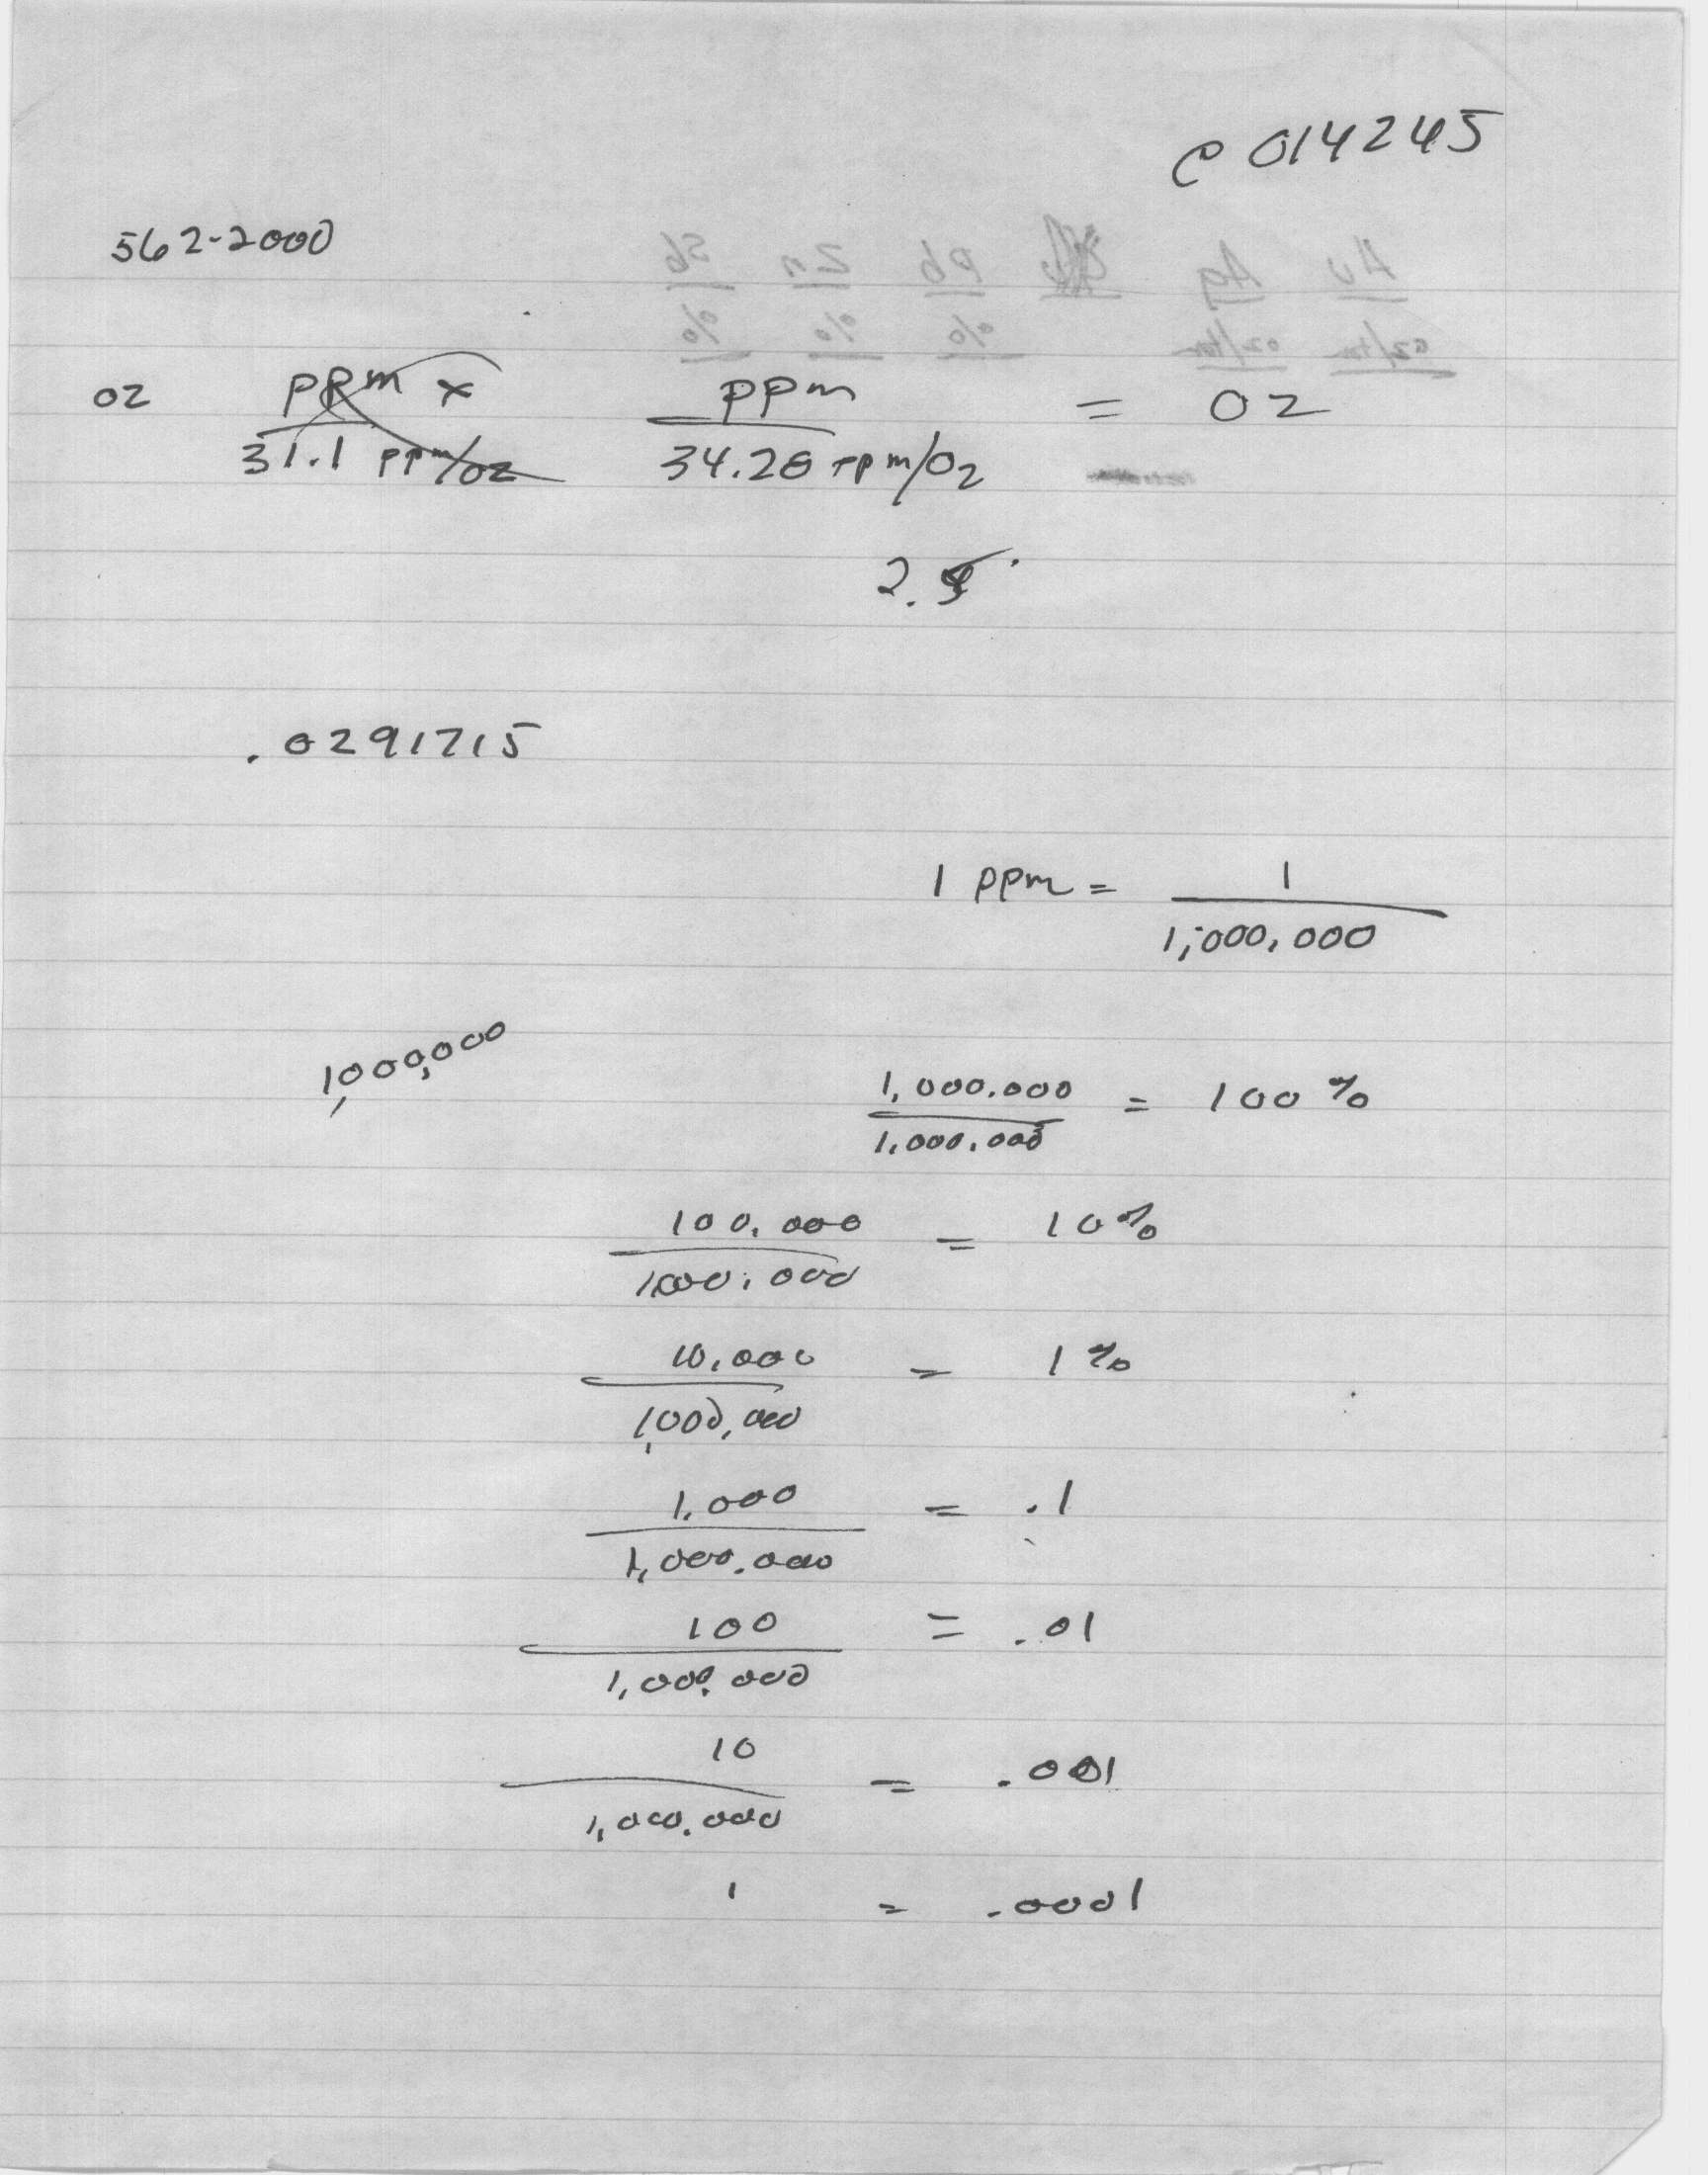 C 014245
562-2000
oz ppm x ppm = oz
31.1 ppm/oz 34.28 ppm/oz
2.
.0291715
1 ppm = 1
1,000,000
1,000,000
1,000.000 = 100%
1,000,000
100,000 = 10%
1,000,000
10,000 = 1%
1,000,000
1,000 = .1
1,000,000
100 = .01
1,000,000
10 = .001
1,000,000
1 = .0001
Au Ag Pb Zn Sb
oz/ton oz/ton % % %